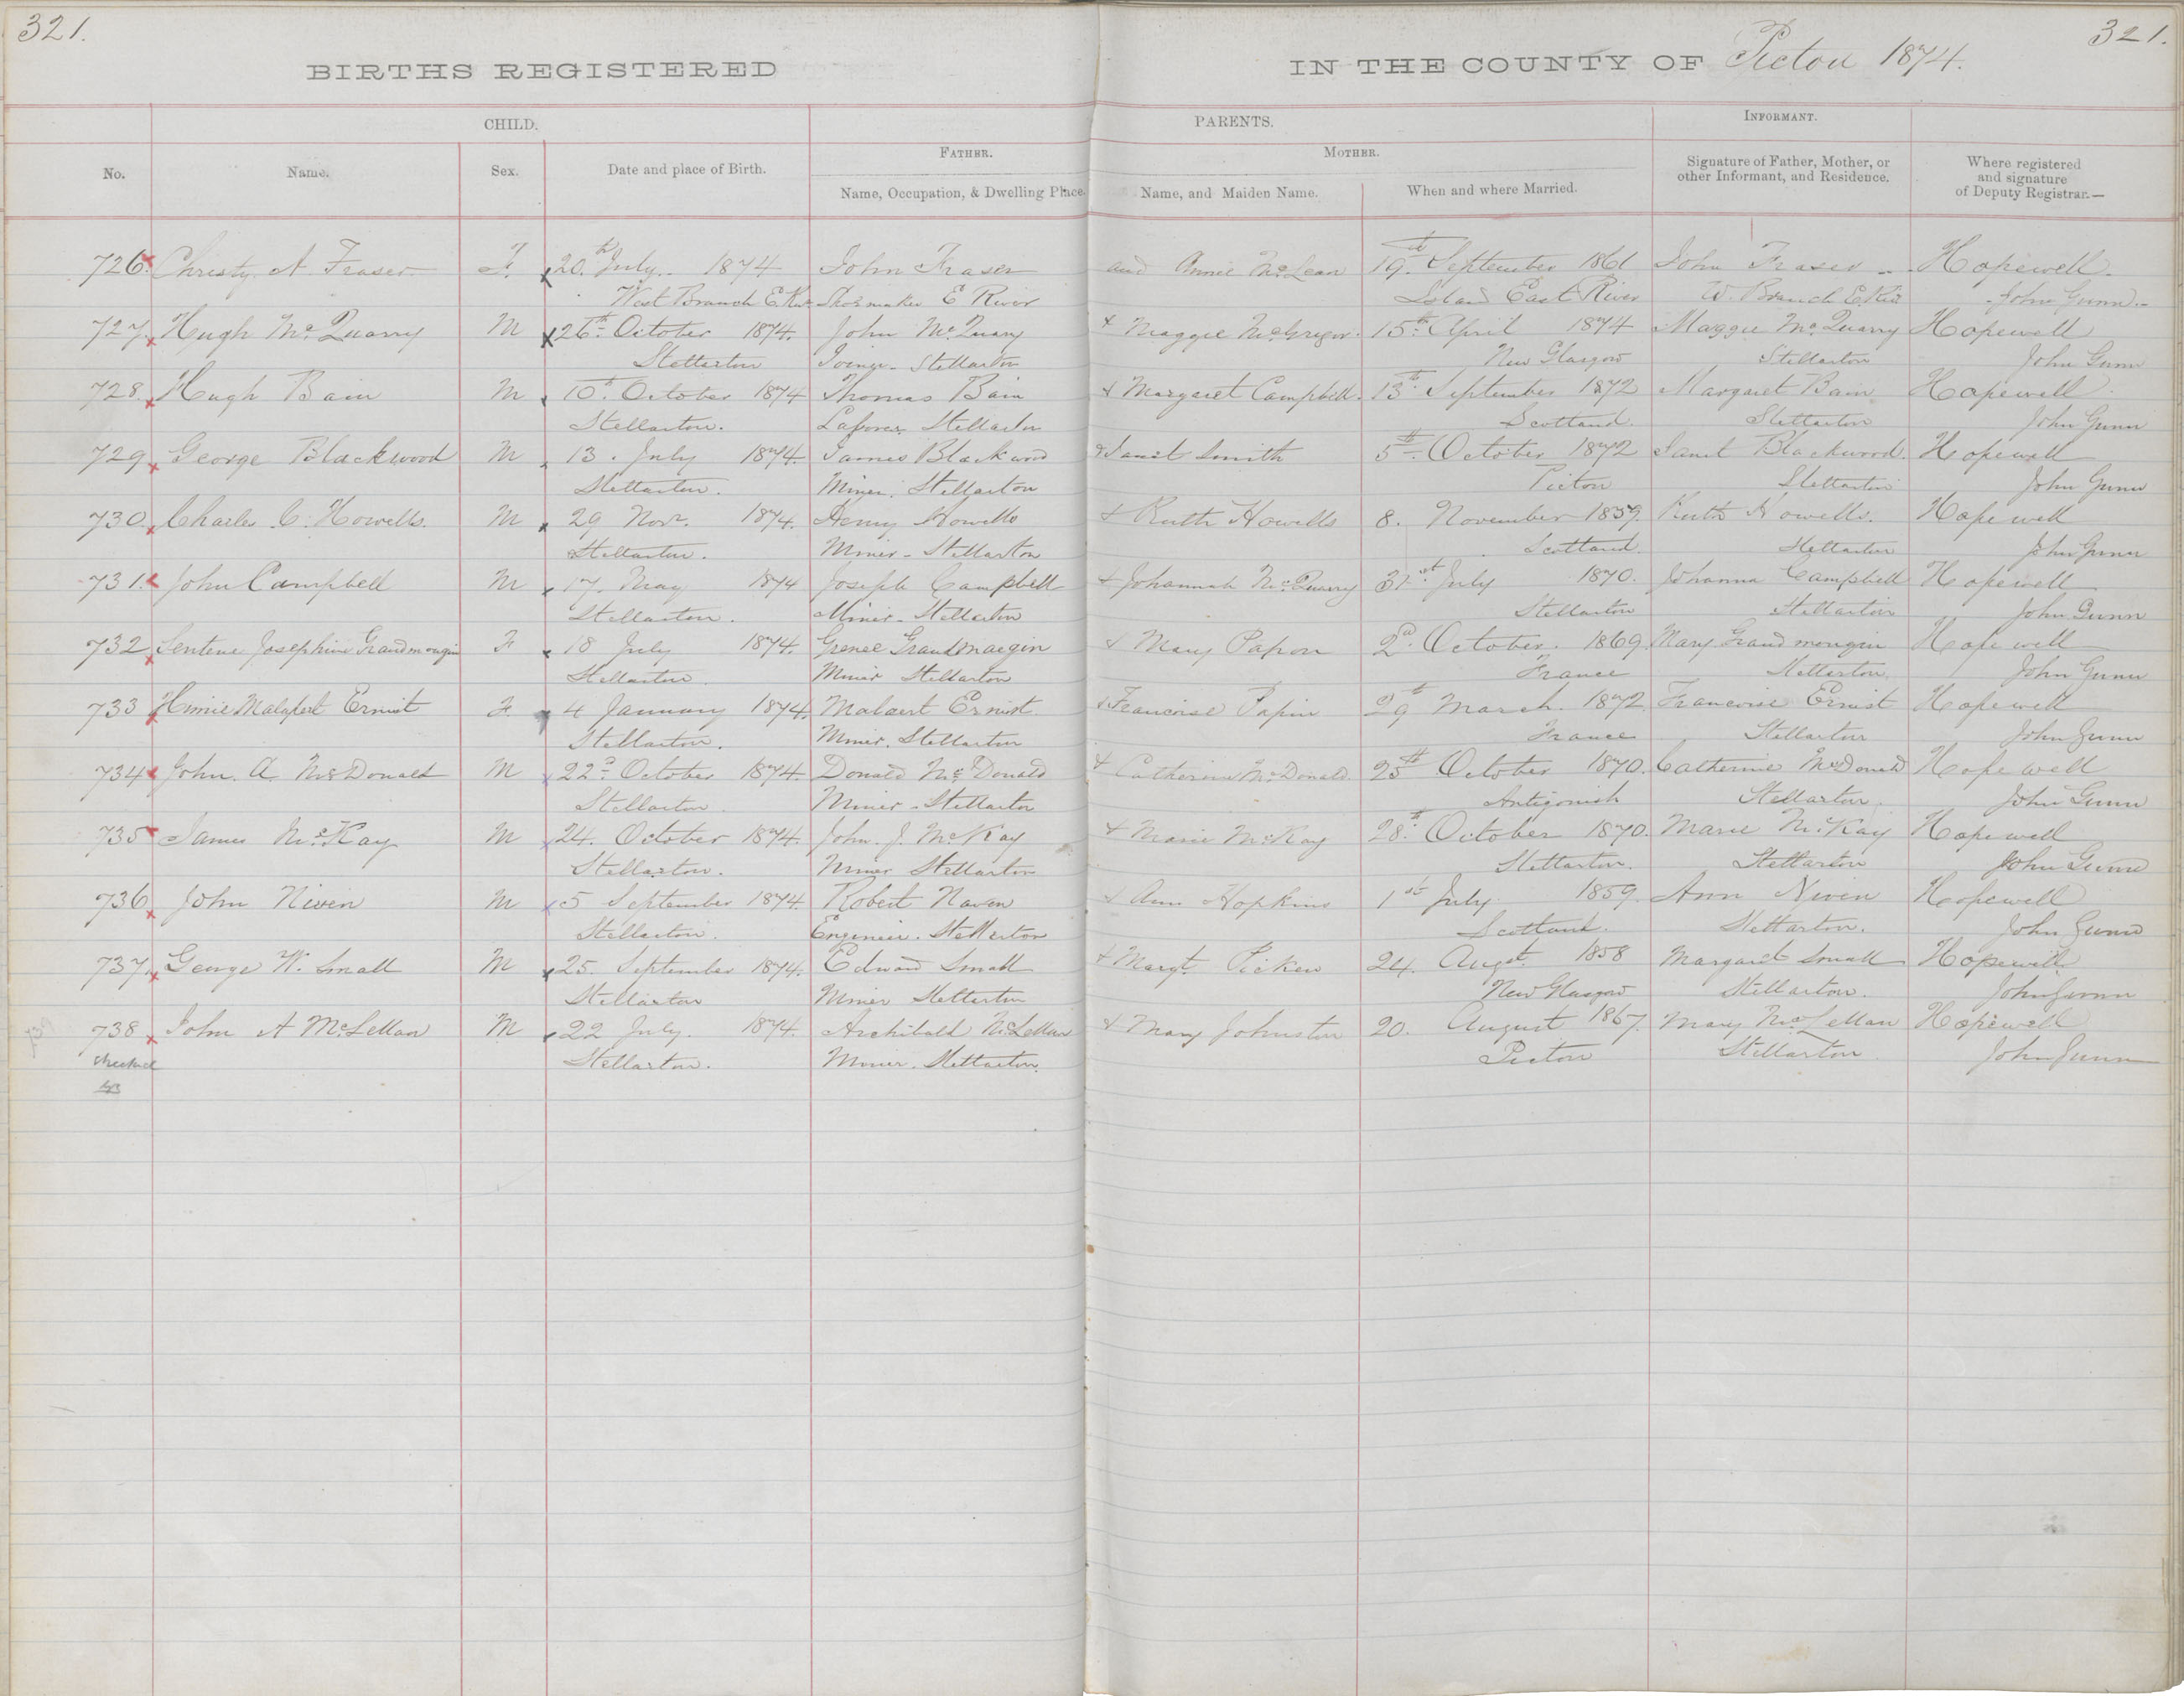 321.
321.
BIRTHS REGISTERED IN THE COUNTY OF Pictou 1874.
CHILD. PARENTS. INFORMANT.
No. Name. Sex. Date and place of Birth. FATHER. MOTHER. Signature of Father, Mother, or other Informant, and Residence. Where registered and signature of Deputy Registrar.—
Name, Occupation, & Dwelling Place. Name, and Maiden Name. When and where Married.
726. Christy A Fraser F. 20th July. 1874 John Fraser and Annie McLean 19th September 1861 John Fraser Hopewell.
West Branch E. Riv. Shoemaker E River Island East River W. Branch E. Riv John Gunn
727 Hugh McQuarry M 26th October 1874. John McQuary & Maggie McGregor. 15th April 1874 Maggie McQuarry Hopewell
Stellarton Joiner - Stellarton New Glasgow Stellarton John Gunn
728. Hugh Bain M 10th October 1874 Thomas Bain & Margaret Campbell. 13th September 1872 Margaret Bain Hopewell
Stellarton. Laborer Stellarton Scotland. Stellarton John Gunn
729 George Blackwood M 13. July 1874. James Blackwood & Janet Smith 5th October 1872 Janet Blackwood. Hopewell
Stellarton. Miner. Stellarton Pictou Stellarton John Gunn
730 Charles C. Howells. M 29 Novr. 1874. Henry Howells & Ruth Howells 8. November 1859. Ruth Howells. Hopewell
Stellarton. Miner - Stellarton Scotland. Stellarton John Gunn
731. John Campbell M 17. May 1874 Joseph Campbell & Johannah McQuarry 31st July 1870. Johanna Campbell Hopewell
Stellarton. Miner - Stellarton Stellarton Stellarton John Gunn
732 Josephine Grandmougin F 18 July 1874. Grenee Grandmaegin & Mary Papon 2d October. 1869 Mary Grandmougin Hopewell
Stellarton. Miner Stellarton France Stellarton. John Gunn
733 Ernist F. 4 January 1874. Malaert Ernist & Francoise Papin 29th March. 1872 Francoise Ernist Hopewell
Stellarton. Miner. Stellarton France Stellarton John Gunn
734 John. A McDonald M 22d October 1874 Donald McDonald & Catherine McDonald 25th October 1870. Catherine McDonald Hopewell
Stellarton. Miner - Stellarton Antigonish Stellarton. John Gunn
735 James McKay M 24. October 1874. John. J. McKay & Marie McKay 28th October 1870. Marie McKay Hopewell
Stellarton. Miner Stellarton Stellarton. Stellarton John Gunn
736 John Niven M 5 September 1874. Robert Naven & Ann Hopkins 1st July 1859. Ann Niven Hopewell
Stellarton. Engineer. Stellarton Scotland. Stellarton. John Gunn
737. George W. Small M 25. September 1874. Edward Small & Margt. Picken 24. Augst. 1858 Margaret Small Hopewell
Stellarton Miner Stellarton New Glasgow Stellarton. John Gunn
738 John A McLellan M 22 July. 1874. Archibald McLellan & Mary Johnston 20. August 1867. Mary McLellan Hopewell
checked Stellarton. Miner. Stellarton. Pictou Stellarton John Gunn